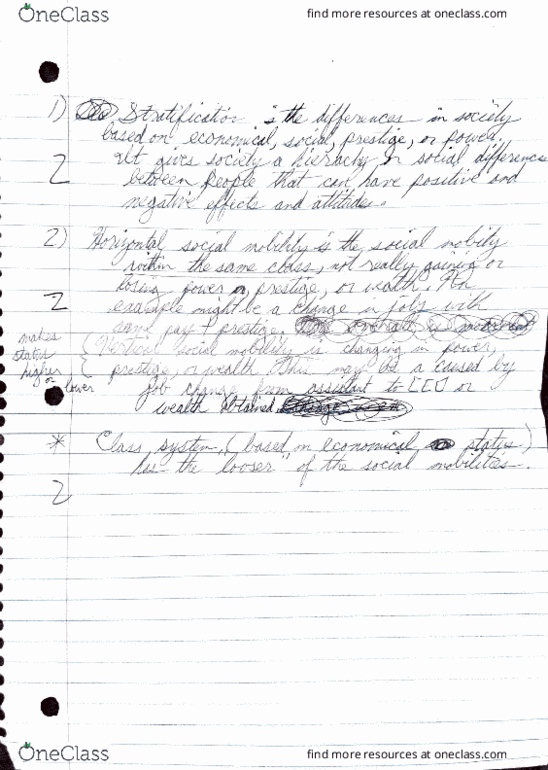 OneClass
find more resources at oneclass.com
1) Stratification is the differences in society
based on economical, social, prestige, or power.
2 It gives society a hierarchy or social differences
between people that can have positive and
negative effects and attitudes.
2) Horizontal social mobility is the social mobily
within the same class, not really gaining or
losing power, prestige, or wealth. An
2 example might be a change in jobs with
same pay + prestige.
makes status higher or lower
(Vertical social mobility is changing in power,
prestige, or wealth this may be a caused by
job change from assistant to CEO or
wealth obtained
* Class system, (based on economical status)
has the "looser" of the social mobilities.
2
OneClass
find more resources at oneclass.com